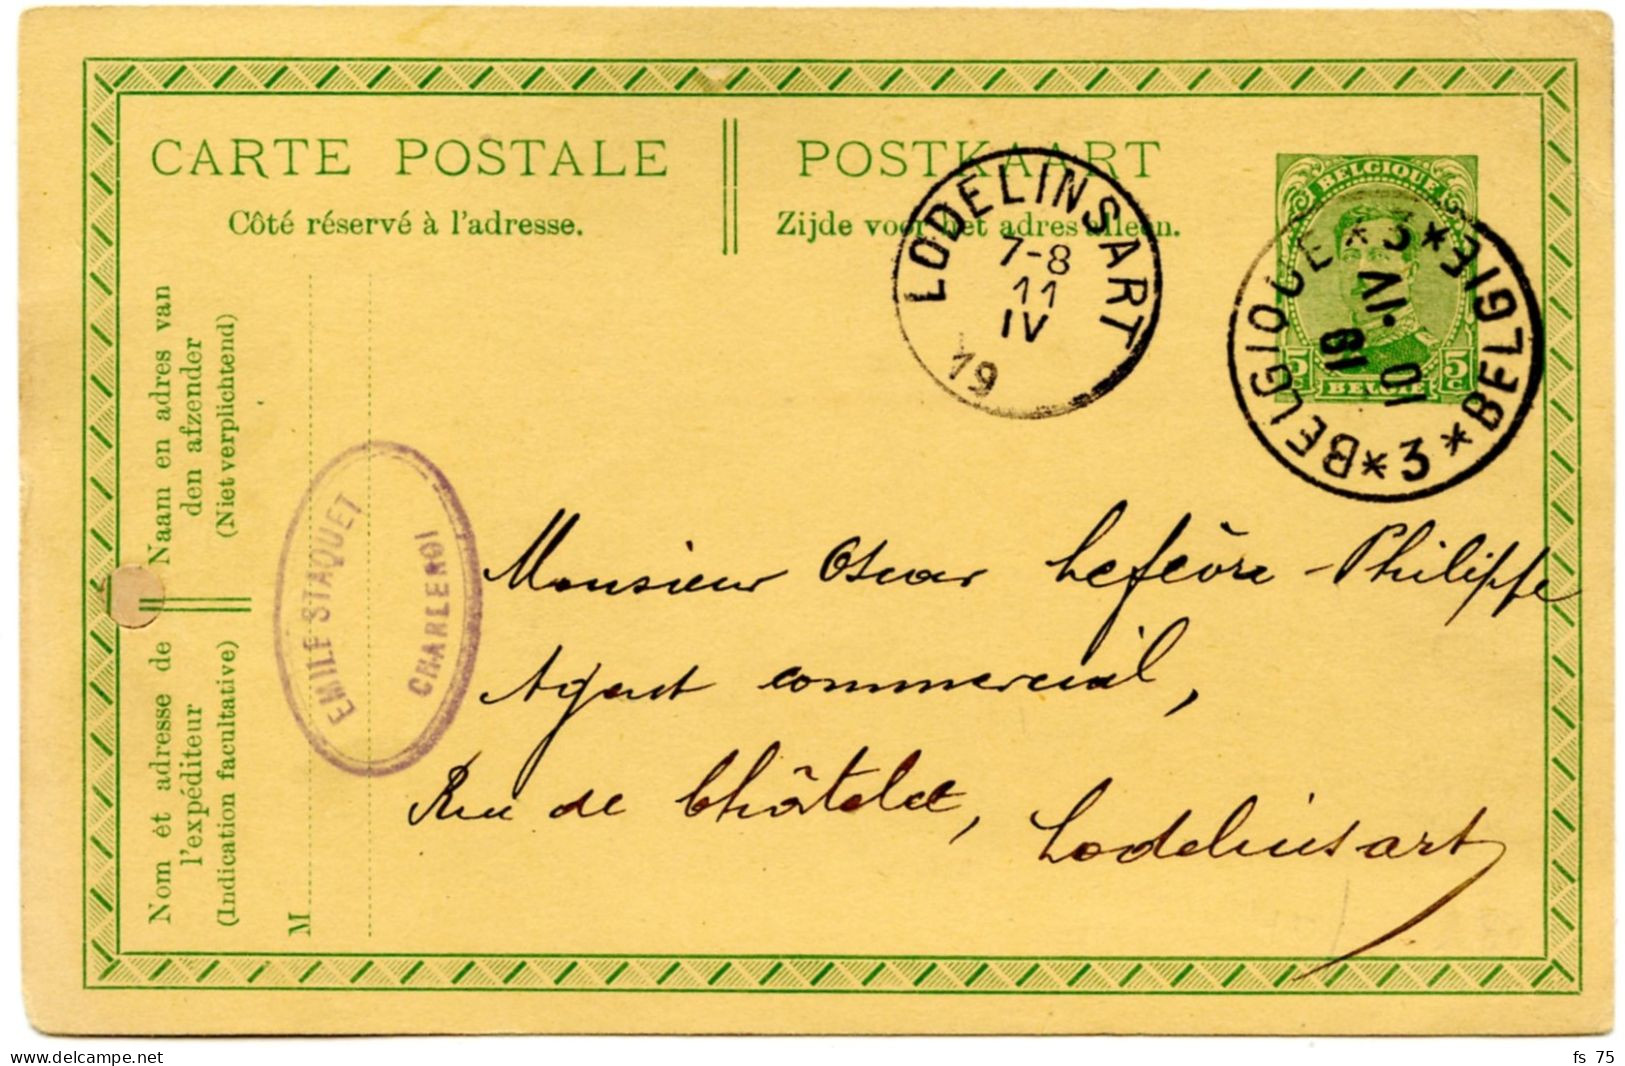 CARTE POSTALE
Côté réservé à l'adresse.
POSTKAART
Zijde voor het adres alleen.
BELGIQUE
5 C. 5 C.
BELGIE
LODELINSART
7-8
11
IV
19
BELGIQUE *3* BELGIE
10.IV
19
*3*
Naam en adres van
den afzender
(Niet verplichtend)
Nom et adresse de
l'expéditeur
(Indication facultative)
M
EMILE STAQUET
CHARLEROI
Monsieur Oscar Lefèvre-Philippe
Agent commercial,
Rue de Châtelet,
Lodelinsart
delcampe.net
fs 75